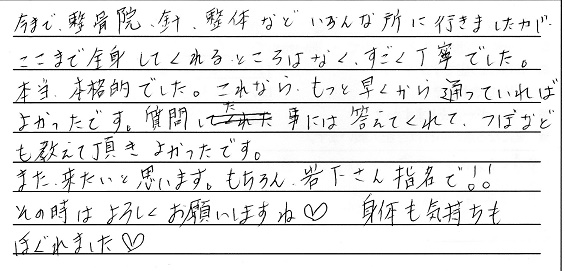 今まで、整骨院、針、整体など いろんな所に行きましたが、
ここまで全身してくれるところはなく、すごく丁寧でした。
本当、本格的でした。これなら、もっと早くから通っていれば
よかったです。質問した事には答えてくれて、つぼなど
も教えて頂きよかったです。
また、来たいと思います。もちろん、岩下さん指名で!!
その時はよろしくお願いしますね♡ 身体も気持ちも
ほぐれました♡